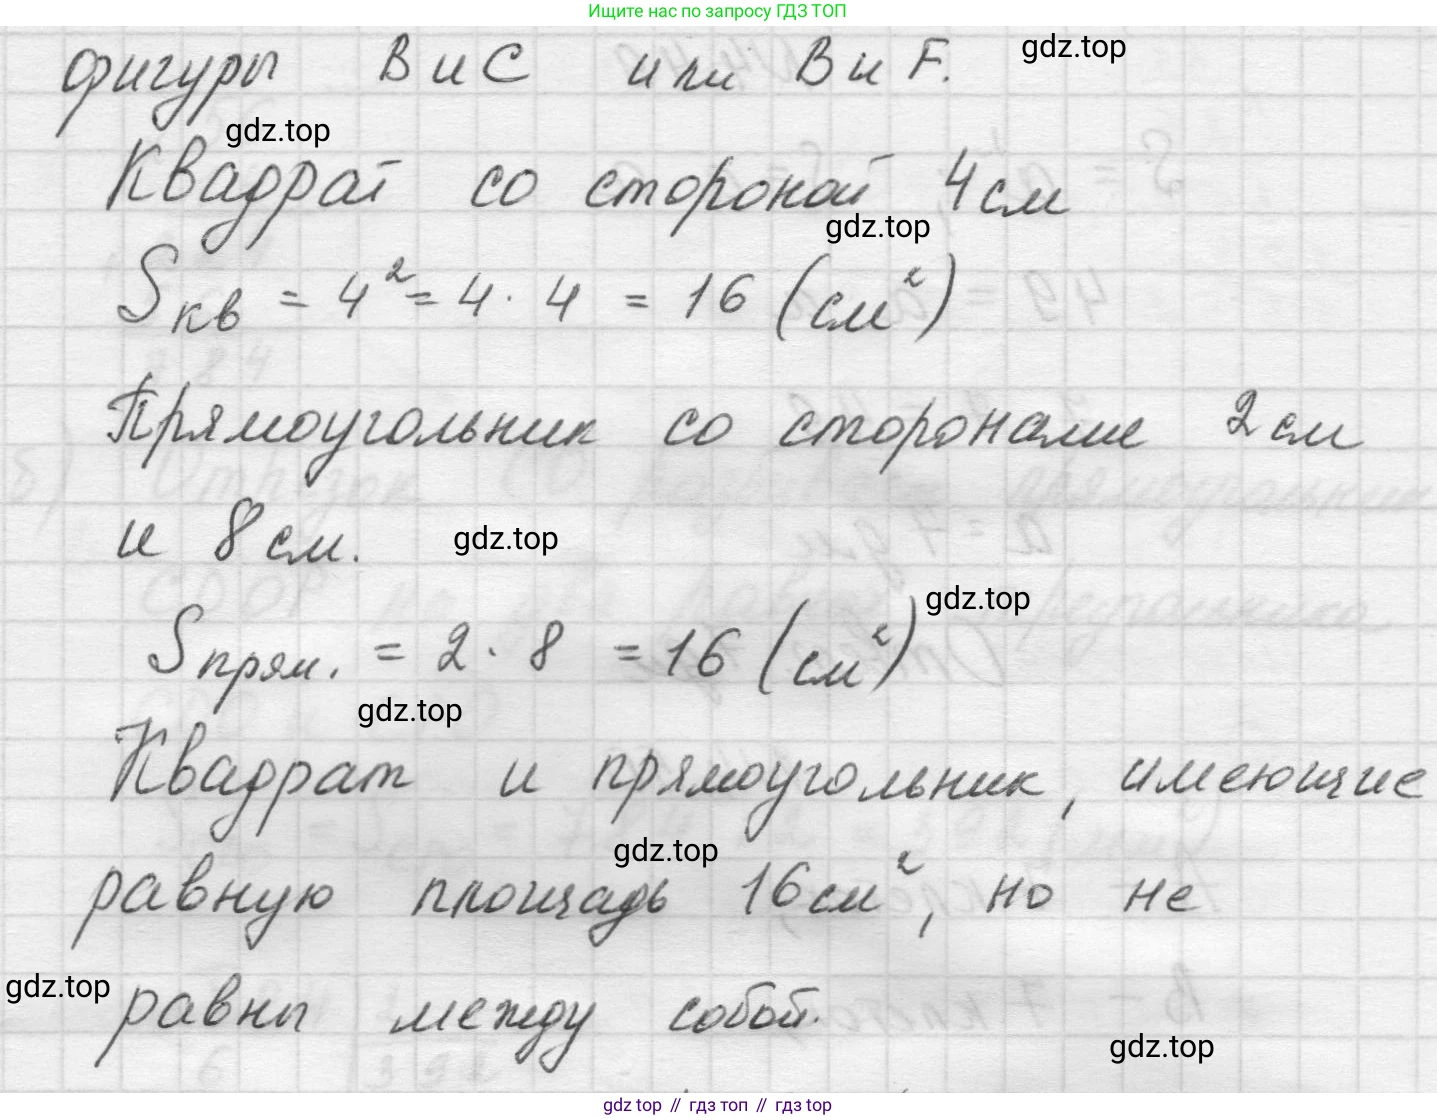 Ищите нас по запросу ГДЗ ТОП
фигуры В и С или В и F.
gdz.top
gdz.top
Квадрат со стороной 4 см
gdz.top
Sкв = 4² = 4 · 4 = 16 (см²)
Прямоугольник со сторонами 2 см
и 8 см.
gdz.top
gdz.top
Sпрям. = 2 · 8 = 16 (см²)
gdz.top
Квадрат и прямоугольник, имеющие
gdz.top
равную площадь 16 см², но не
gdz.top
равны между собой.
gdz.top
gdz top // гдз топ // гдз top